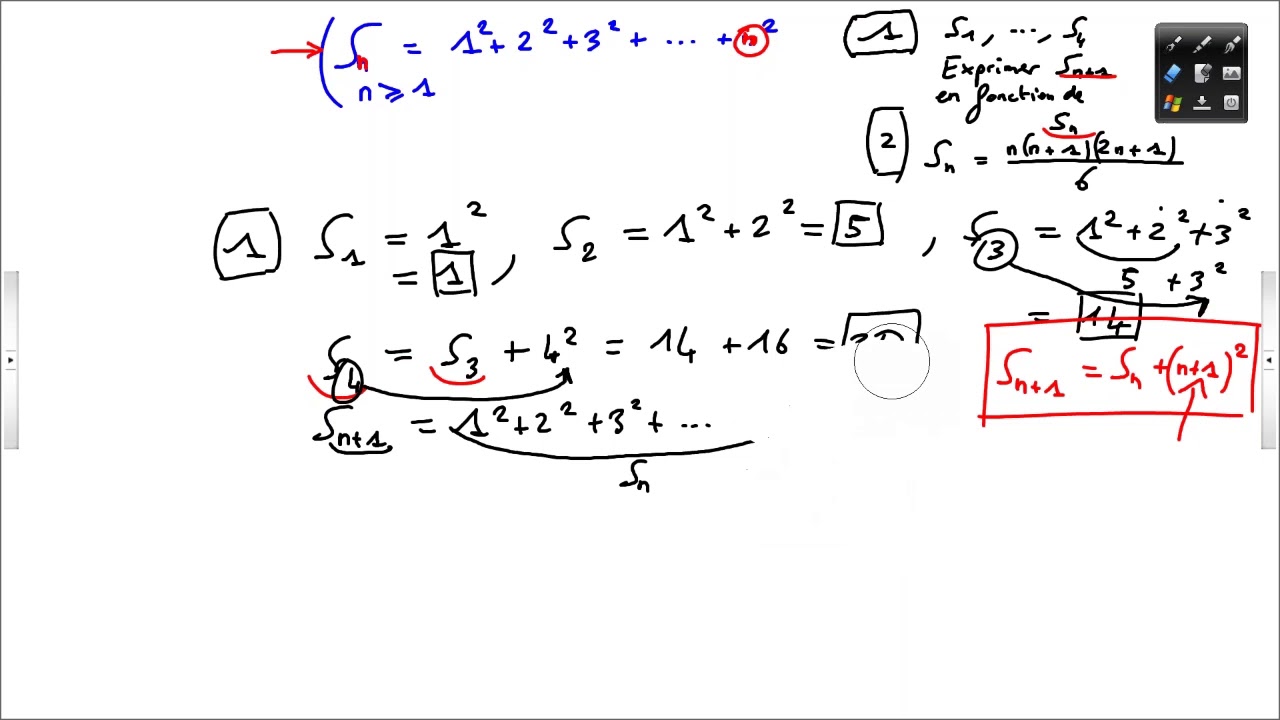 Sn = 1² + 2² + 3² + ... + n²
n ≥ 1
1 S1, ..., S4
Exprimer Sn+1
en fonction de
Sn
2 Sn = n(n+1)(2n+1)
6
1 S1 = 1² , S2 = 1² + 2² = 5 , S3 = 1² + 2² + 3²
= 1
5 + 3²
= 14
S4 = S3 + 4² = 14 + 16 =
Sn+1 = Sn + (n+1)²
Sn+1 = 1² + 2² + 3² + ...
Sn